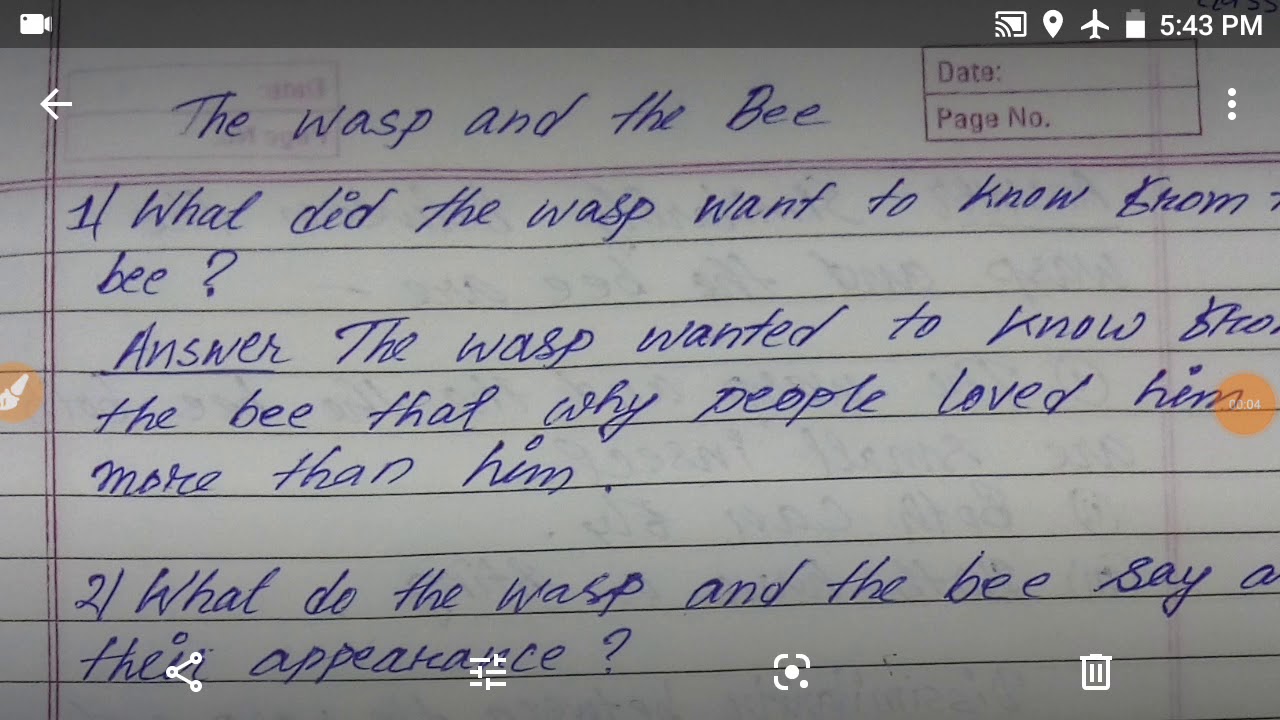 5:43 PM
Date:
Page No.
The wasp and the Bee
1) What did the wasp want to know from
bee ?
Answer The wasp wanted to know
the bee that why people loved him
00:04
more than him.
2) What do the wasp and the bee say
their appearance ?